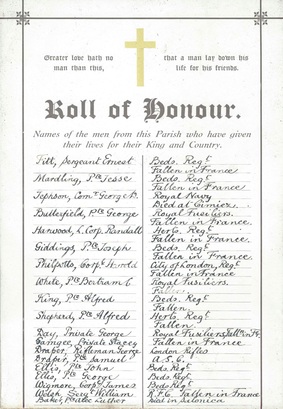 Greater love hath no man than this,
that a man lay down his life for his friends.
Roll of Honour.
Names of the men from this Parish who have given
their lives for their King and Country.
Titt, Sergeant Ernest Beds. Regt
Fallen in France
Mardling, Pte Jesse Beds. Regt
Fallen in France
Jephson, George Royal Navy
Died at
Butterfield, Pte George Royal Fusiliers.
Fallen in France.
Harwood, L. Corp. Randall Herts. Regt
Fallen in France.
Giddings, Pte Joseph Beds. Regt
Fallen in France.
Philpotts, Corpl Harold City of London, Regt
Fallen in France
White, Pte Bertram C Royal Fusiliers.
Fallen
King, Pte Alfred Beds. Regt
Fallen
Shepherd, Pte Alfred Herts. Regt
Fallen
Day, Private George Royal Fusiliers
Private Stacey Fallen in France
Draper, Rifleman George London Rifles
Draper, Pte Samuel A.S.C.
Ellis, Pte John Beds. Regt
Ellis, Pte George Beds. Regt
Wigmore, Corpl James Beds Regt
Welch, Sergt William R.F.C. Fallen in France
Luther Died in